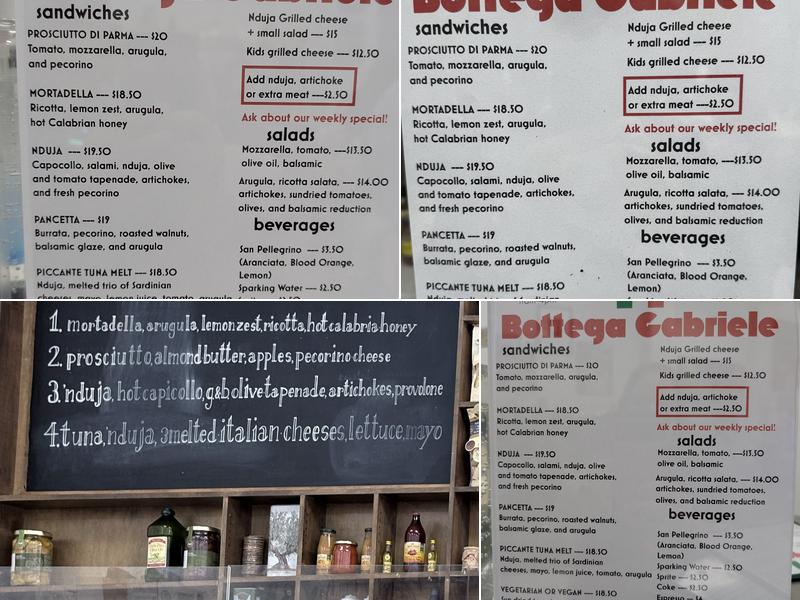 Gabriele
sandwiches
PROSCIUTTO DI PARMA --- $20
Tomato, mozzarella, arugula,
and pecorino
MORTADELLA --- $18.50
Ricotta, lemon zest, arugula,
hot Calabrian honey
NDUJA --- $19.50
Capocollo, salami, nduja, olive
and tomato tapenade, artichokes,
and fresh pecorino
PANCETTA --- $19
Burrata, pecorino, roasted walnuts,
balsamic glaze, and arugula
PICCANTE TUNA MELT --- $18.50
Nduja, melted trio of Sardinian
cheeses, mayo, lemon juice, tomato, arugula
Nduja Grilled cheese
+ small salad --- $15
Kids grilled cheese --- $12.50
Add nduja, artichoke
or extra meat ---$2.50
Ask about our weekly special!
salads
Mozzarella, tomato, ---$13.50
olive oil, balsamic
Arugula, ricotta salata, --- $14.00
artichokes, sundried tomatoes,
olives, and balsamic reduction
beverages
San Pellegrino --- $3.50
(Aranciata, Blood Orange,
Lemon)
Sparking Water --- $2.50
Bottega Gabriele
sandwiches
PROSCIUTTO DI PARMA --- $20
Tomato, mozzarella, arugula,
and pecorino
MORTADELLA --- $18.50
Ricotta, lemon zest, arugula,
hot Calabrian honey
NDUJA --- $19.50
Capocollo, salami, nduja, olive
and tomato tapenade, artichokes,
and fresh pecorino
PANCETTA --- $19
Burrata, pecorino, roasted walnuts,
balsamic glaze, and arugula
PICCANTE TUNA MELT --- $18.50
Nduja Grilled cheese
+ small salad --- $15
Kids grilled cheese --- $12.50
Add nduja, artichoke
or extra meat ---$2.50
Ask about our weekly special!
salads
Mozzarella, tomato, ---$13.50
olive oil, balsamic
Arugula, ricotta salata, --- $14.00
artichokes, sundried tomatoes,
olives, and balsamic reduction
beverages
San Pellegrino --- $3.50
(Aranciata, Blood Orange,
Lemon)
1. mortadella, arugula, lemon zest, ricotta, hot calabria honey
2. prosciutto, almond butter, apples, pecorino cheese
3. 'nduja, hot capicollo, g&b olive tapenade, artichokes, provolone
4. tuna, 'nduja, 3 melted italian cheeses, lettuce, mayo
Bottega Gabriele
sandwiches
PROSCIUTTO DI PARMA --- $20
Tomato, mozzarella, arugula,
and pecorino
MORTADELLA --- $18.50
Ricotta, lemon zest, arugula,
hot Calabrian honey
NDUJA --- $19.50
Capocollo, salami, nduja, olive
and tomato tapenade, artichokes,
and fresh pecorino
PANCETTA --- $19
Burrata, pecorino, roasted walnuts,
balsamic glaze, and arugula
PICCANTE TUNA MELT --- $18.50
Nduja, melted trio of Sardinian
cheeses, mayo, lemon juice, tomato, arugula
VEGETARIAN OR VEGAN --- $18.50
Nduja Grilled cheese
+ small salad --- $15
Kids grilled cheese --- $12.50
Add nduja, artichoke
or extra meat ---$2.50
Ask about our weekly special!
salads
Mozzarella, tomato, ---$13.50
olive oil, balsamic
Arugula, ricotta salata, --- $14.00
artichokes, sundried tomatoes,
olives, and balsamic reduction
beverages
San Pellegrino --- $3.50
(Aranciata, Blood Orange,
Lemon)
Sparking Water --- $2.50
Sprite --- $2.50
Coke --- $2.50
Espresso --- $4